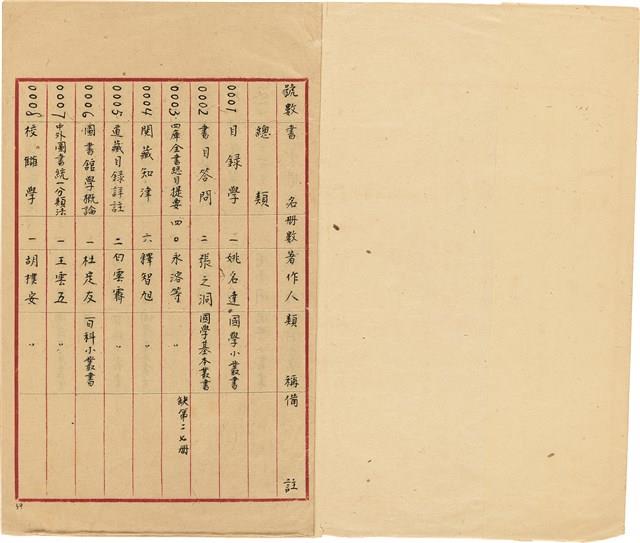 號數 書名 册數 著作人 類稱 備註
總類
0001 目錄學 二 姚名達 國學小叢書
0002 書目答問 二 張之洞 國學基本叢書
0003 四庫全書總目提要 四〇 永溶等 〃 缺第二七册
0004 閱藏知津 六 釋智旭 〃
0005 道藏目錄詳註 二 白雲霽 〃
0006 圖書館學概論 一 杜定友 百科小叢書
0007 中外圖書統一分類法 一 王雲五 〃
0008 校讎學 一 胡樸安 〃